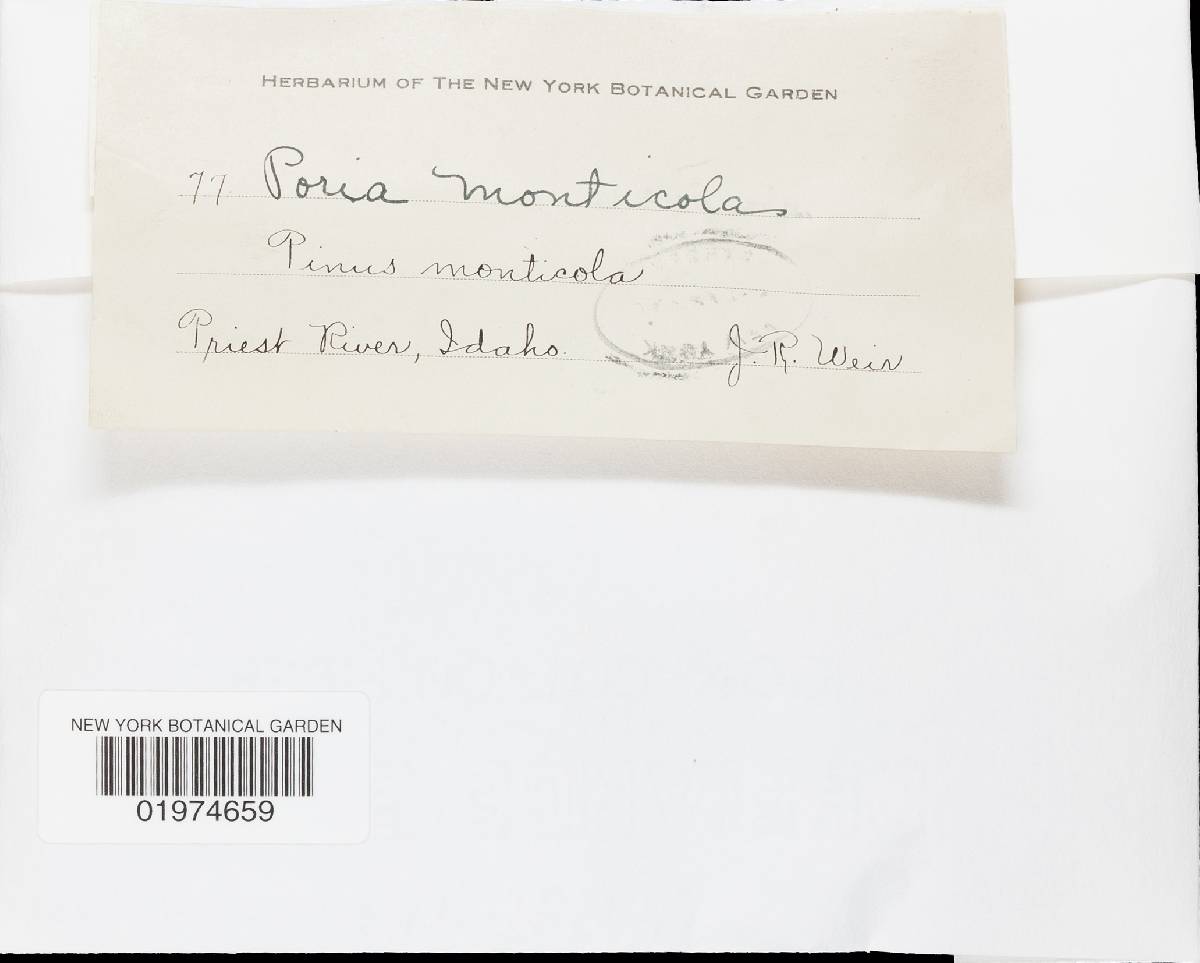 HERBARIUM OF THE NEW YORK BOTANICAL GARDEN
77 Poria monticola
Pinus monticola
Priest River, Idaho. J. R. Weir
NEW YORK BOTANICAL GARDEN
01974659